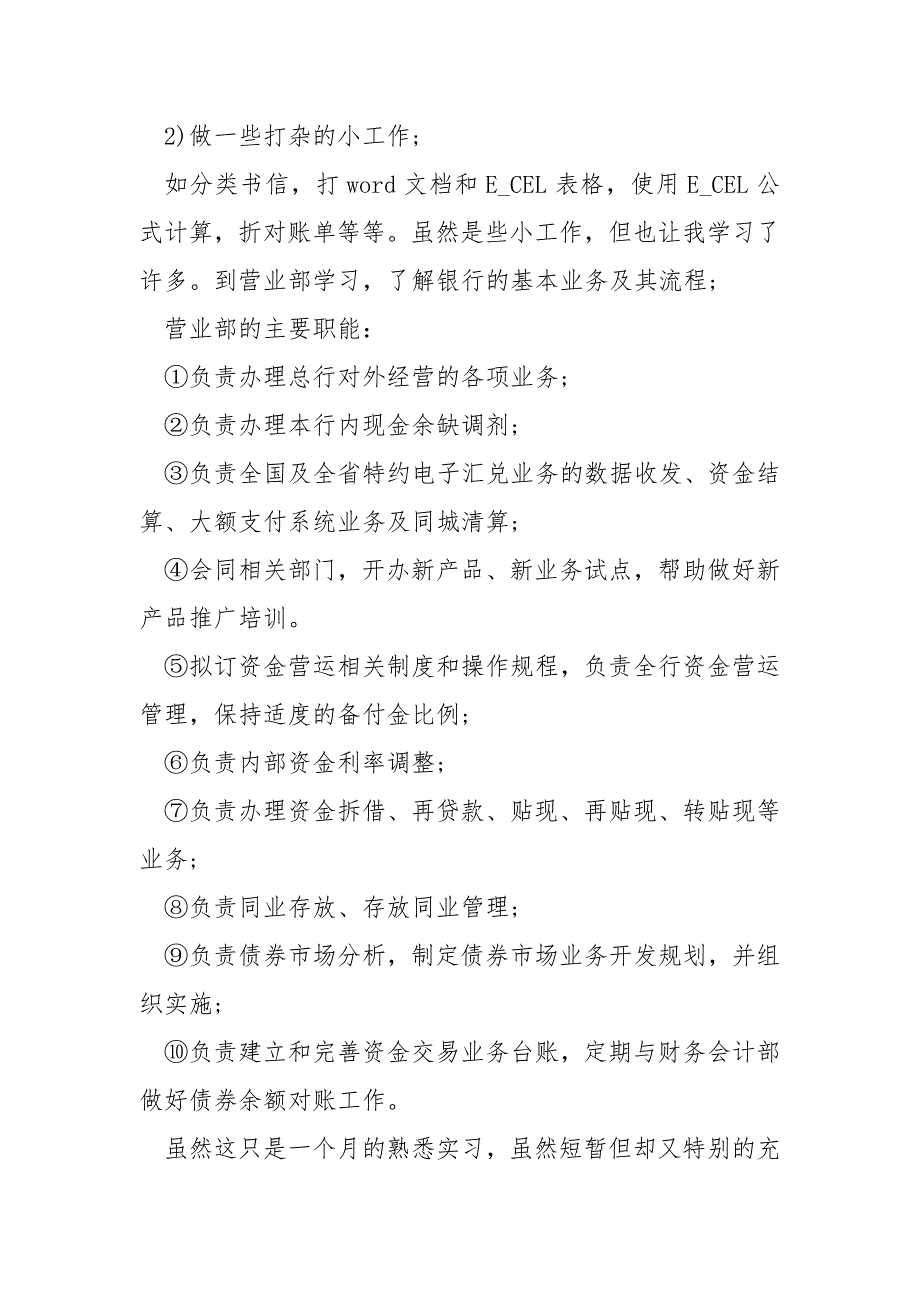 2)做一些打杂的小工作;
如分类书信，打 word 文档和 E_CEL 表格，使用 E_CEL 公
式计算，折对账单等等。虽然是些小工作，但也让我学习了
许多。到营业部学习，了解银行的基本业务及其流程;
营业部的主要职能：
①负责办理总行对外经营的各项业务;
②负责办理本行内现金余缺调剂;
③负责全国及全省特约电子汇兑业务的数据收发、资金结
算、大额支付系统业务及同城清算;
④会同相关部门，开办新产品、新业务试点，帮助做好新
产品推广培训。
⑤拟订资金营运相关制度和操作规程，负责全行资金营运
管理，保持适度的备付金比例;
⑥负责内部资金利率调整;
⑦负责办理资金拆借、再贷款、贴现、再贴现、转贴现等
业务;
⑧负责同业存放、存放同业管理;
⑨负责债券市场分析，制定债券市场业务开发规划，并组
织实施;
⑩负责建立和完善资金交易业务台账，定期与财务会计部
做好债券余额对账工作。
虽然这只是一个月的熟悉实习，虽然短暂但却又特别的充